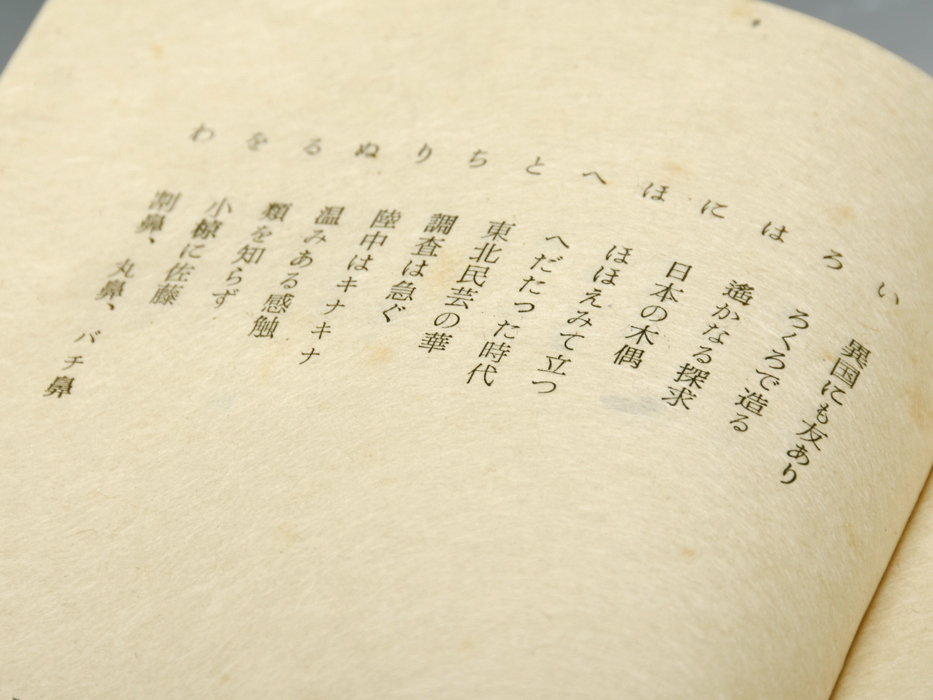 い 異国にも友あり
ろ ろくろで造る
は 遙かなる探求
に 日本の木偶
ほ ほほえみて立つ
へ へだたった時代
と 東北民芸の華
ち 調査は急ぐ
り 陸中はキナキナ
ぬ 温みある感触
る 類を知らず
を 小椋に佐藤
わ 割鼻、丸鼻、バチ鼻